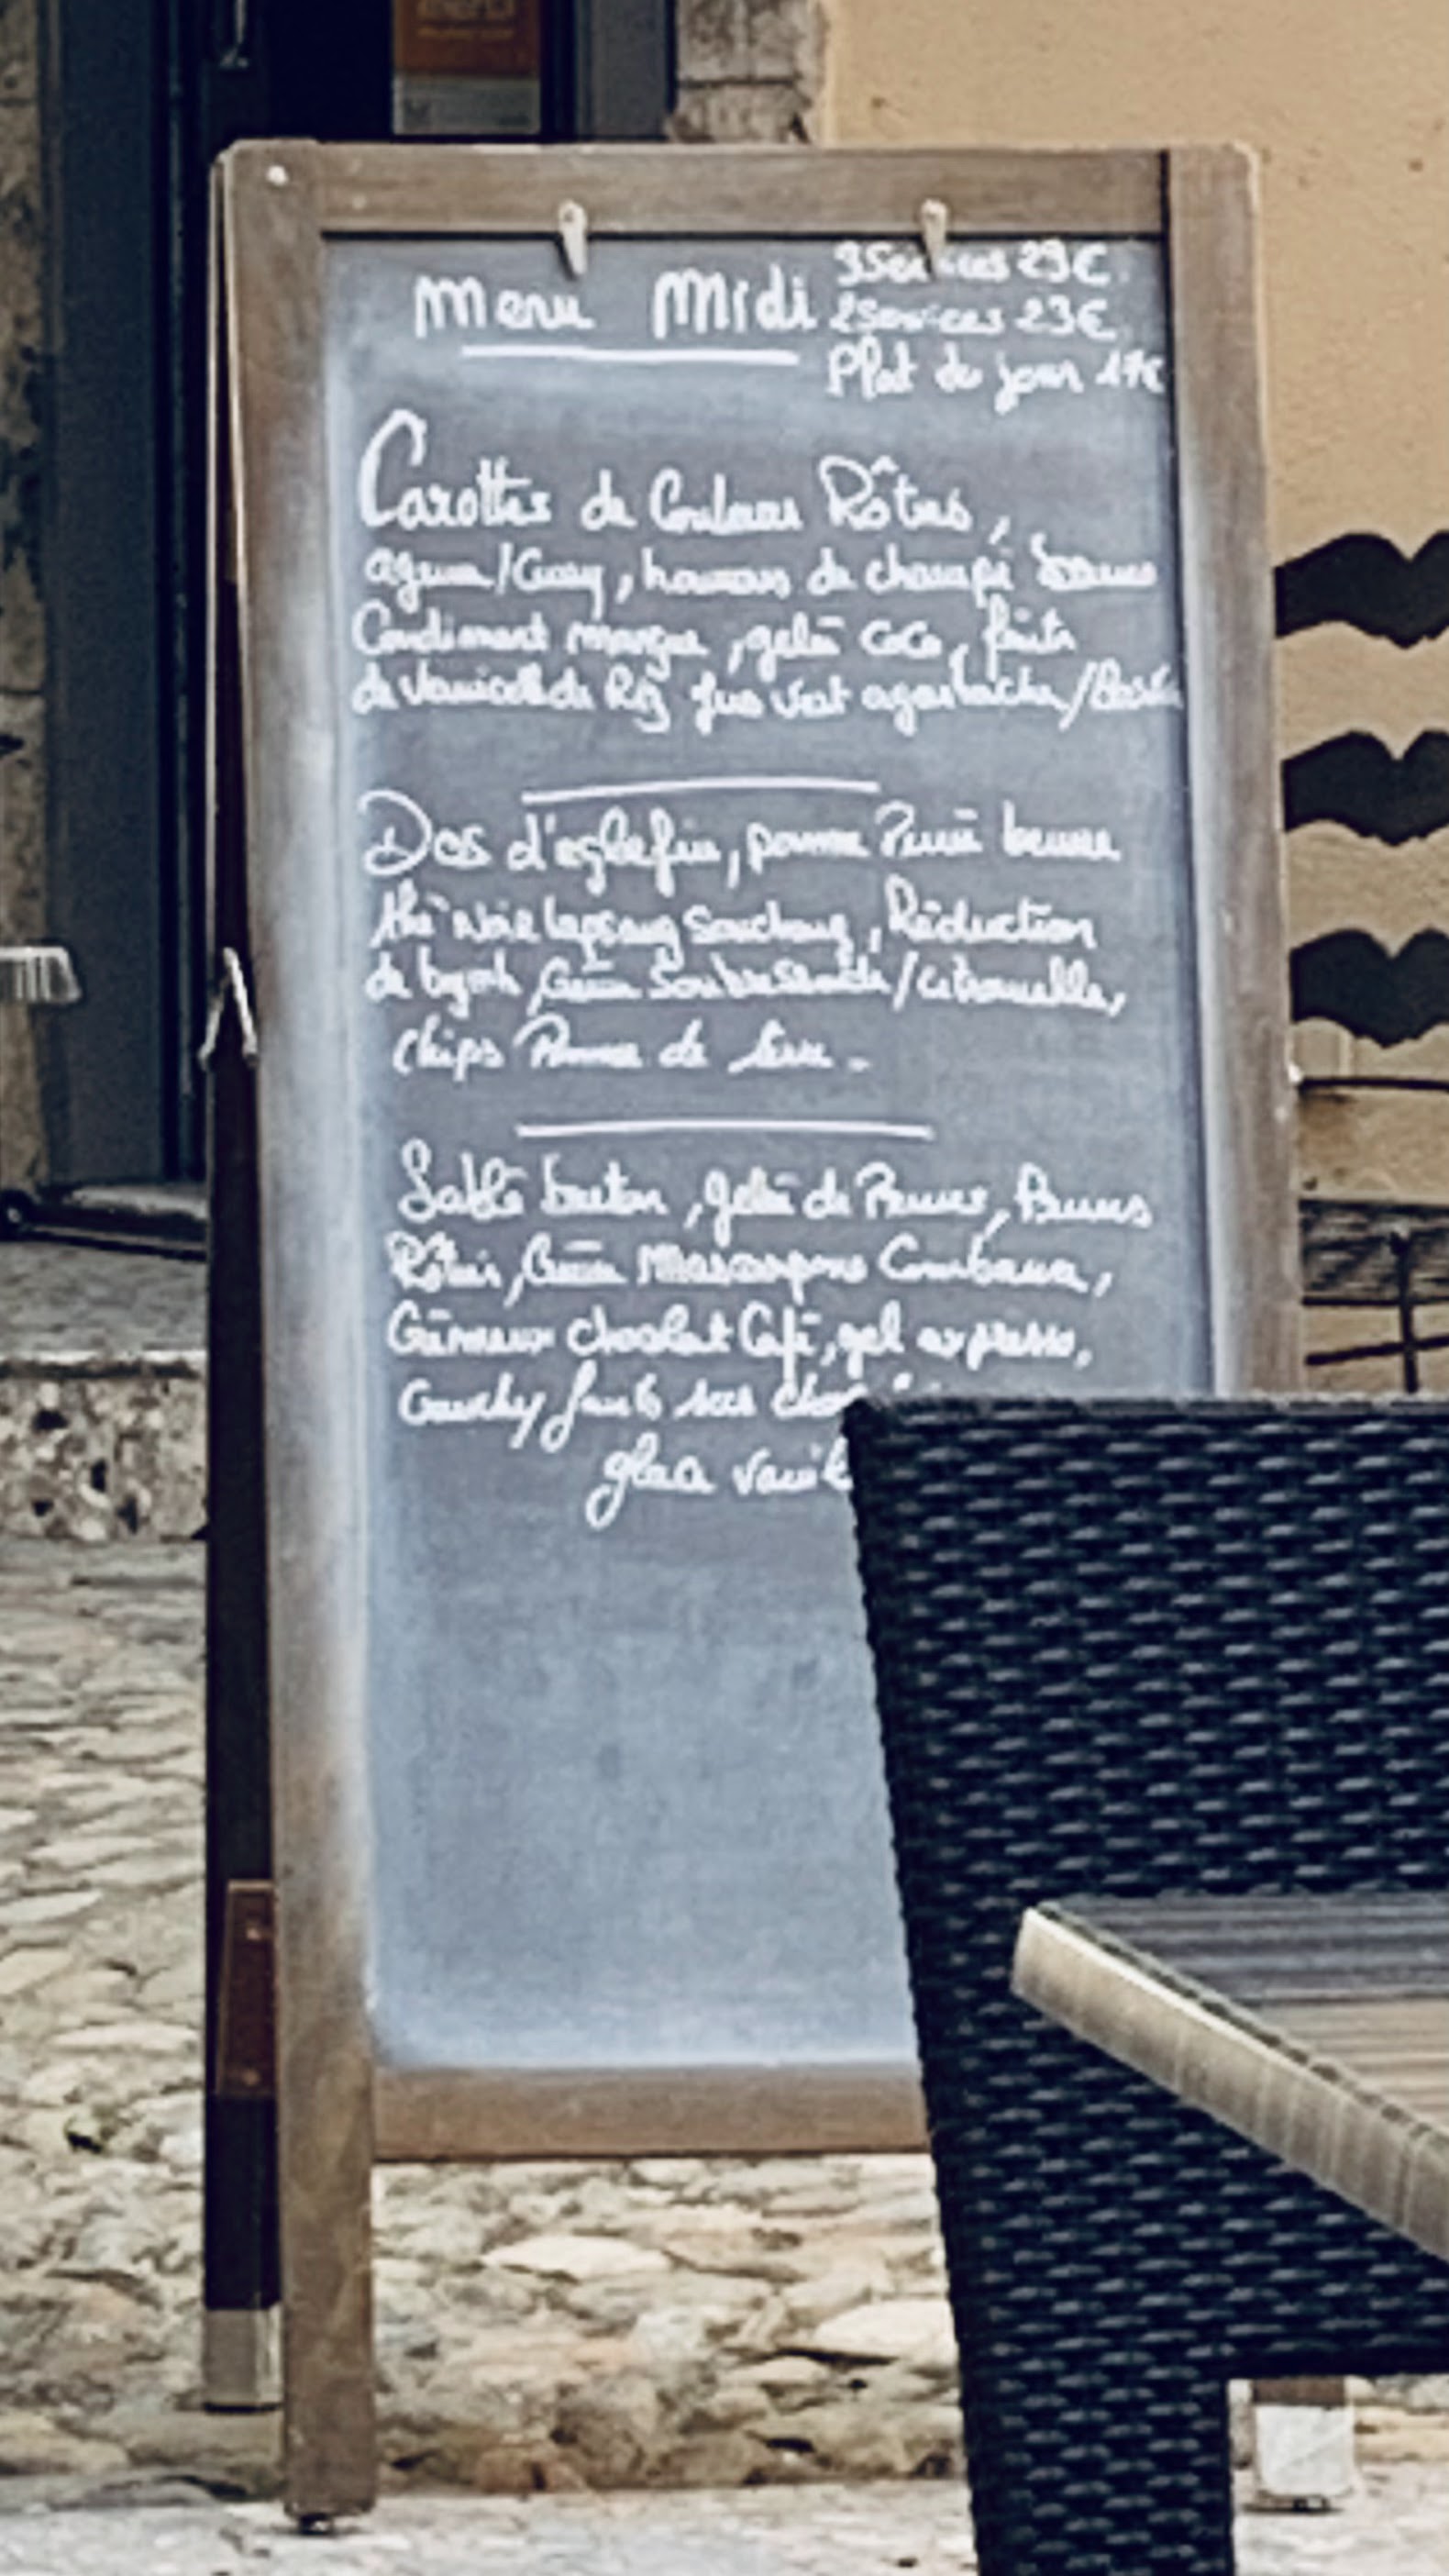 merci
Menu Midi
3Services 29€
2Services 23€
Plat du jour 17€
Carottes de Couleurs Rôties,
agrume/Curry, houmous de champi
Condiment mangue, gelée coco, frite
de vermicelle de Riz jus vert agastache/
Dos d'eglefin, pomme Purée beurre
thé Noir lapsang Souchong, Réduction
de byrrh, Crème Soubressade/citronelle,
chips Pomme de terre.
Sablé breton, gelée de Prunes, Prunes
Rôties, Crème Mascarpone Combava,
Crémeux chocolat Café, gel expresso,
Crunchy fruits secs
glace